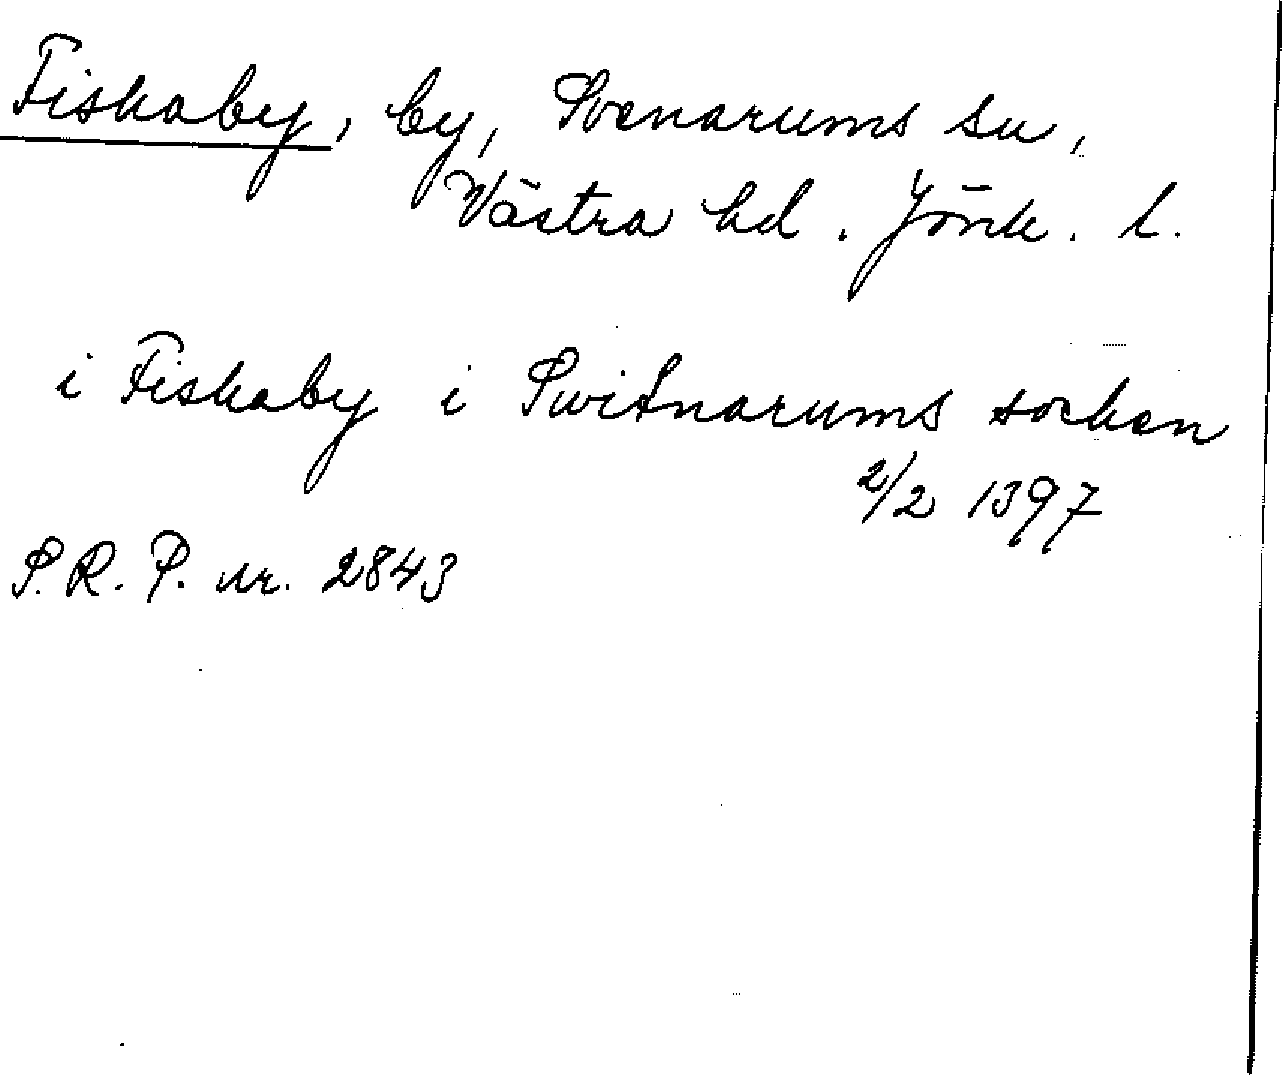 Fiskaby, by, Svenarums sn,
Västra hd. Jönk. l.
i Fiskaby i Switnarums socken
2/2 1397
S.R.P. nr. 2843